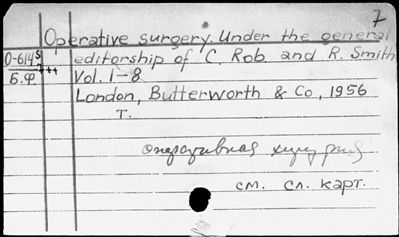 7
Operative surgery. Under the general
O-614 editorship of C. Rob. and R. Smith
Б.Ф. +++ Vol. 1-8
London, Butterworth & Co, 1956
т.
оперативная хирургия
см. сл. карт.